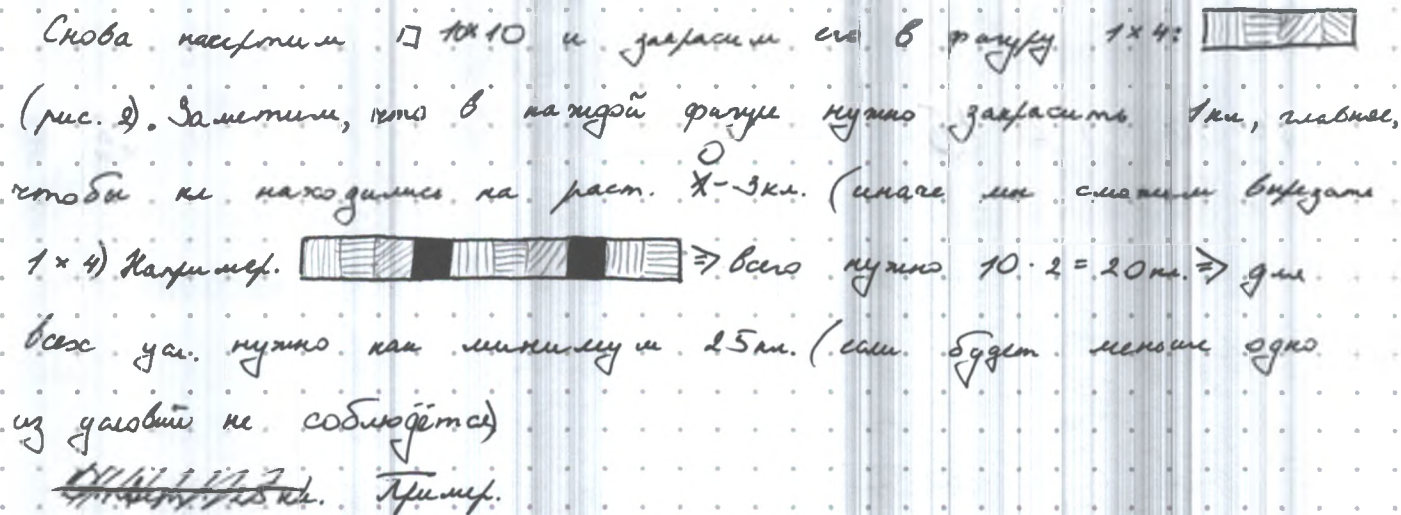 Снова начертим □ 10×10 и закрасим его в фигуру 1×4:
(рис. 2). Заметим, что в каждой фигуре нужно закрасить 1 кл, главное,
чтобы кл находились на раст. 0-3 кл. (иначе мы сможем вырезать
1×4) Например. ⇒ всего нужно 10·2=20 кл. ⇒ для
всех усл. нужно как минимум 25 кл. (если будет меньше одно
из условий не соблюдётся)
Пример.